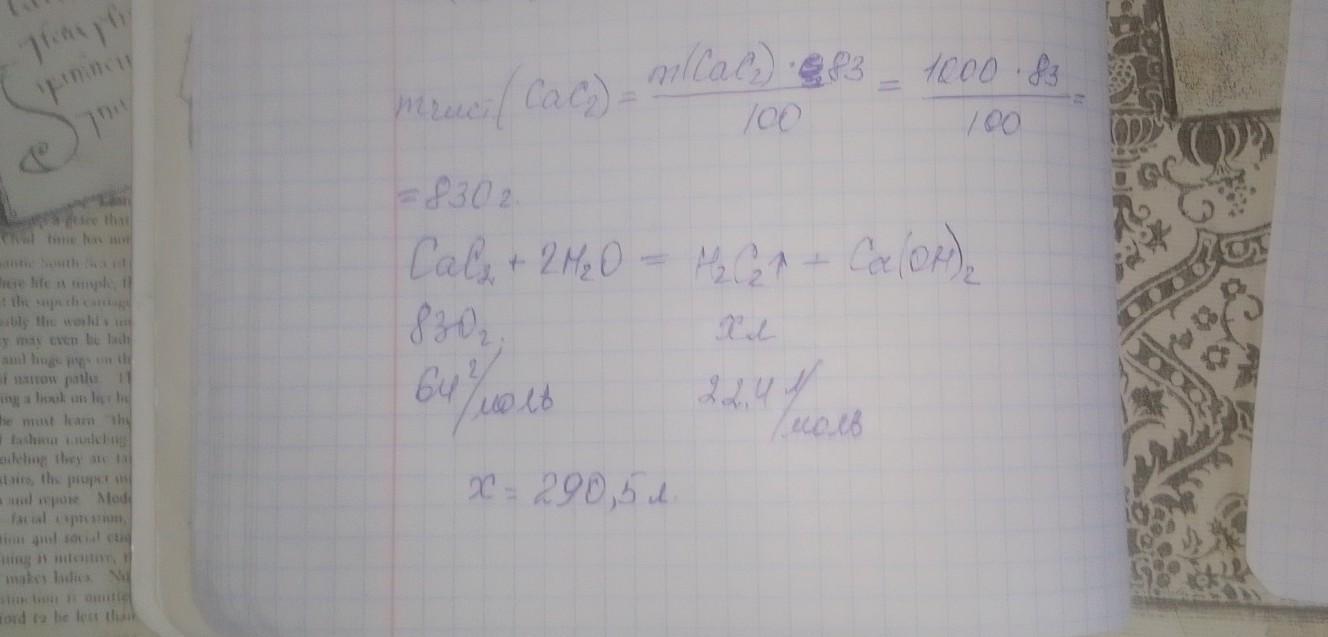 mчист(CaC₂) = m(CaC₂) · 83 / 100 = 1000 · 83 / 100 =
= 830 г.
CaC₂ + 2H₂O = H₂C₂↑ + Ca(OH)₂
830 г. x л
64 г/моль 22,4 л/моль
x = 290,5 л.
grace that
time has not
South Sea
life is simple,
the superb carriage
the world's
may even be
and hugs
narrow paths.
a book on
must learn "the
fashion modeling
modeling they are
the proper
and repose. Mode
facial expression,
and social
is intentive,
makes ladies.
is
to be less than